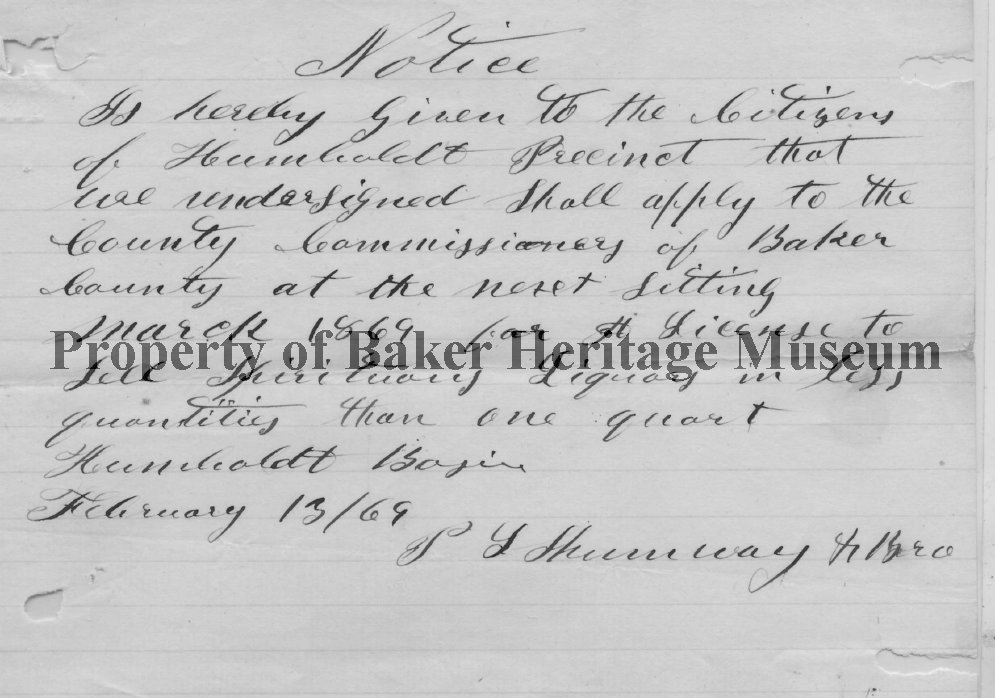 Notice
Is hereby Given to the Citizens
of Humboldt Precinct that
we undersigned Shall apply to the
County Commissioners of Baker
County at the next Sitting
March 1869 for A License to
Property of Baker Heritage Museum
Sell Spirituous Liquors in less
quantities than one quart
Humboldt Basin
February 13/69
P L Shumway & Bro